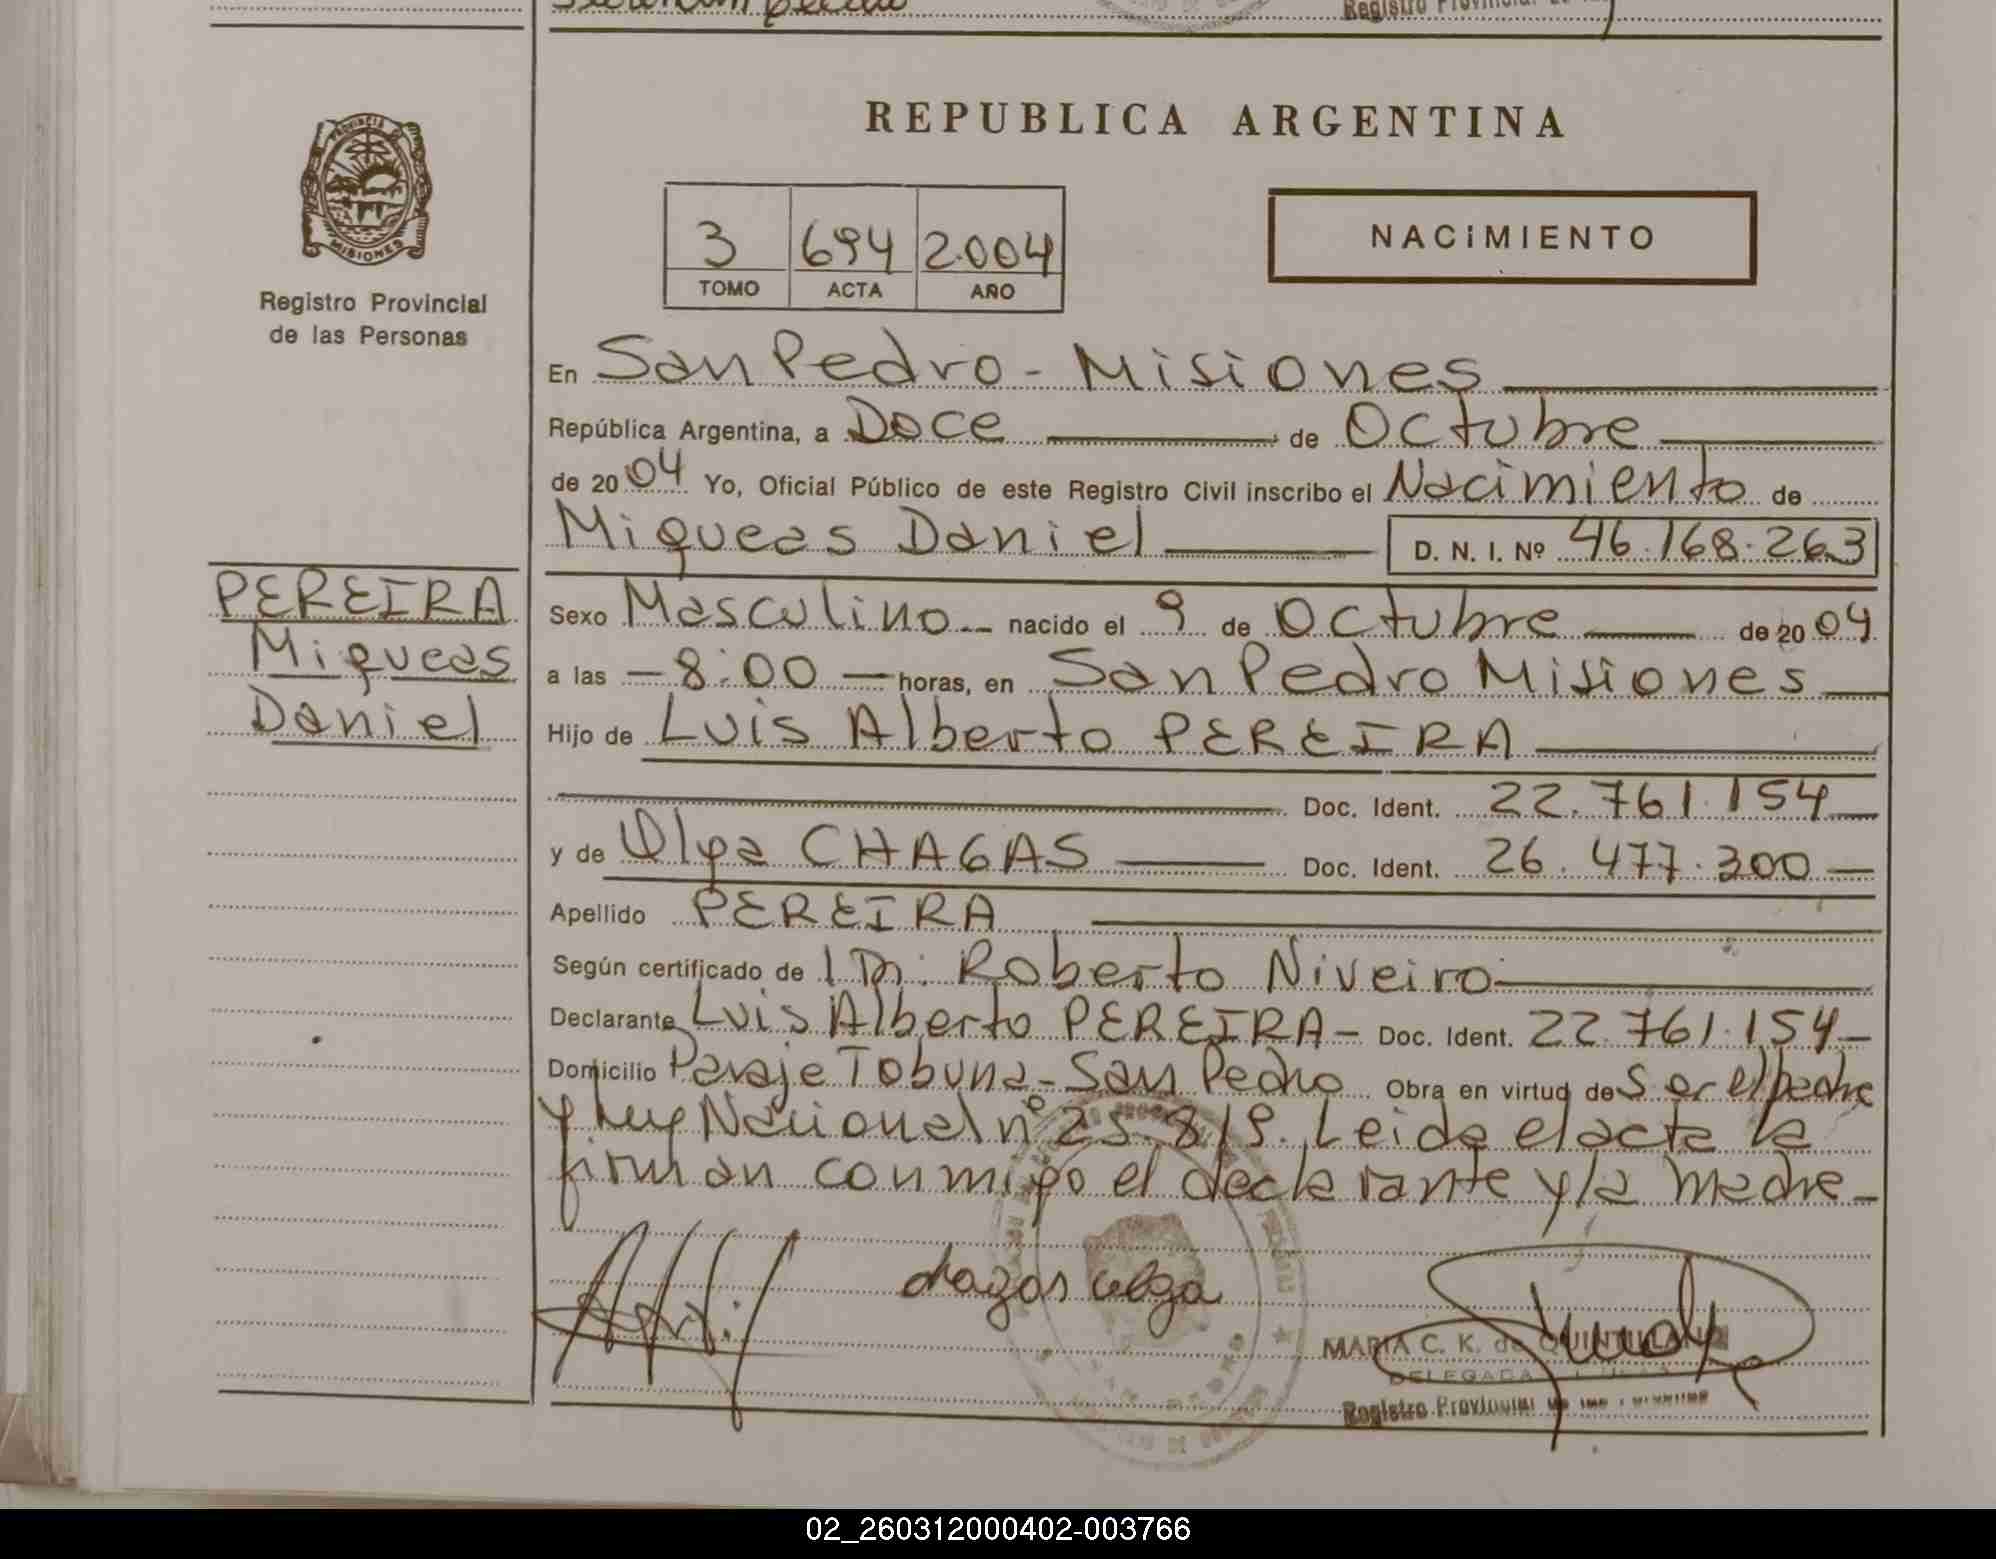 REPUBLICA ARGENTINA
PROVINCIA
MISIONES
Registro Provincial
de las Personas
3 694 2.004
TOMO ACTA AÑO
NACIMIENTO
En San Pedro - Misiones
República Argentina, a Doce de Octubre
de 20 04 Yo, Oficial Público de este Registro Civil inscribo el Nacimiento de
Miqueas Daniel D. N. I. Nº 46.168.263
PEREIRA
Miqueas
Daniel
Sexo Masculino nacido el 9 de Octubre de 20 04
a las - 8:00 - horas, en San Pedro Misiones
Hijo de Luis Alberto PEREIRA
Doc. Ident. 22.761.154
y de Olga CHAGAS Doc. Ident. 26.477.300
Apellido PEREIRA
Según certificado de Roberto Niveiro
Declarante Luis Alberto PEREIRA - Doc. Ident. 22.761.154
Domicilio Paraje Tobuna - San Pedro Obra en virtud de Ser el padre
y Ley Nacional nº 25.819. Leida el acta la
firman conmigo el declarante y la madre -
chagas olga
MARIA C. K. de QUINTILLAN
DELEGADA
Registro Provincial de las Personas
02_260312000402-003766